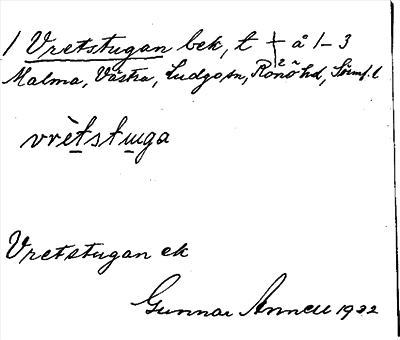 1 Vretstugan bek, t + å 1-3
Malma, Västra, Ludgo sn, Rönö hd, Söml. l
vrètstuga
Vretstugan ek
Gunnar Annell 1932